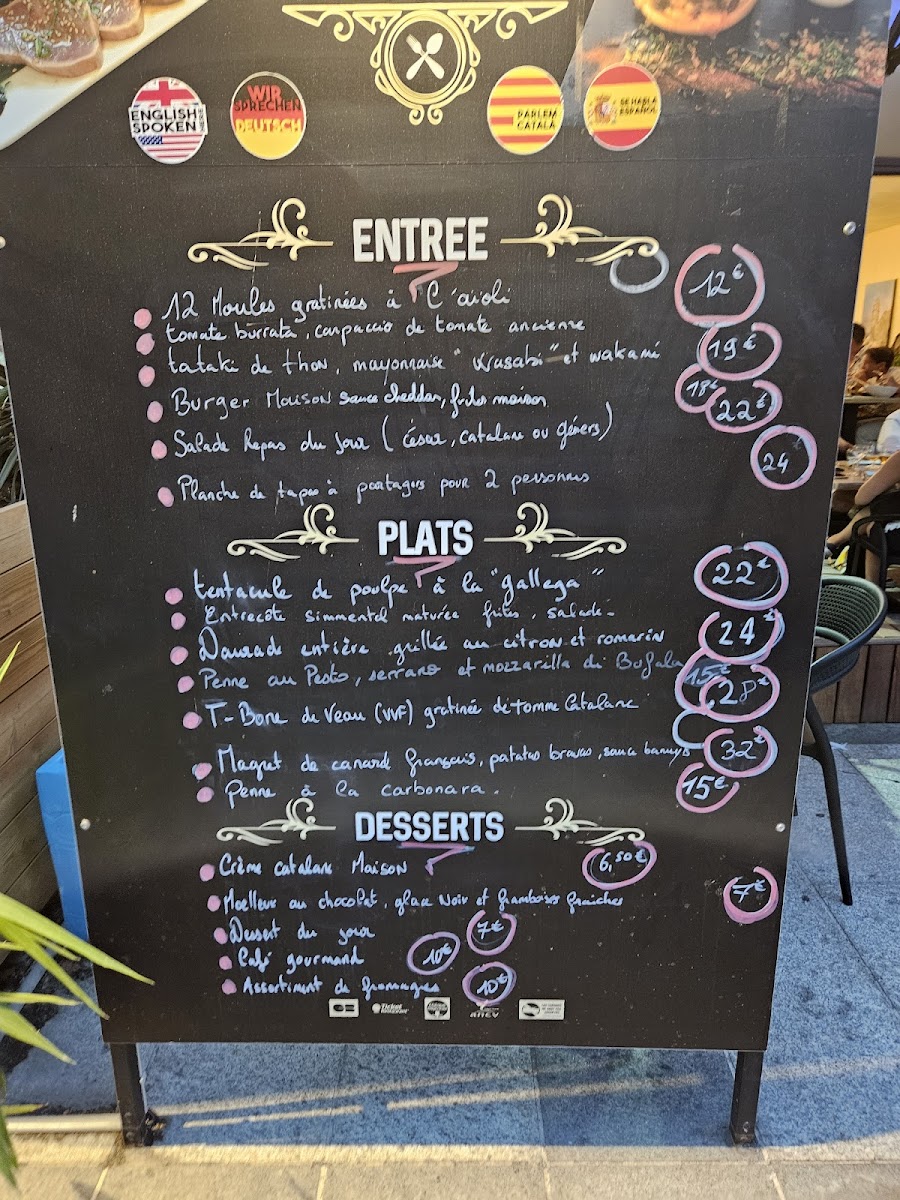 ENGLISH
SPOKEN
WIR
SPRECHEN
DEUTSCH
PARLEM
CATALÀ
SE HABLA
ESPAÑOL
ENTREE
12 Moules gratinées à "l'aïoli 12€
tomate burrata, carpaccio de tomate ancienne
tataki de thon, mayonnaise "Wasabi" et wakamé 19€
Burger Maison sauce cheddar, frites maison 18€
22€
Salade Repas du jour (César, Catalane ou Gésiers)
24
Planche de tapas à partager pour 2 personnes
PLATS
tentacule de poulpe à la "gallega" 22€
Entrecôte simmental maturée frites, salade.
Daurade entière grillée au citron et romarin 24€
Penne au Pesto, serrano et mozzarilla di Bufala 15€
28€
T-Bone de Veau (VVF) gratinée de tomme Catalane
Magret de canard français, patatas bravas, sauce banyuls 32€
Penne à la carbonara. 15€
DESSERTS
Crème catalane Maison 6,50€
Moelleux au chocolat, glace Noix et framboises fraiches 7€
Dessert du jour 7€
Café gourmand 10€
Assortiment de fromages 10€
CB
Ticket
Restaurant
ancv